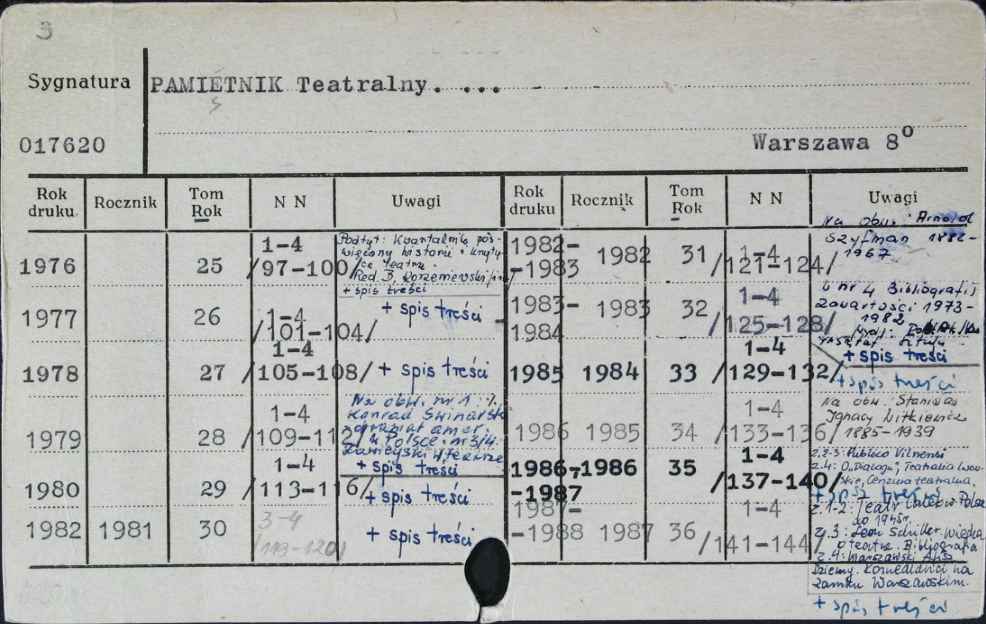 3
Sygnatura PAMIĘTNIK Teatralny. ...
017620 Warszawa 8°
Rok druku Rocznik Tom Rok N N Uwagi
1976 25 1-4 /97-100/ Podtyt: Kwartalnik poś-
więcony historii i kryty-
ce teatru.
Red. B.
+ spis treści
1977 26 1-4 /101-104/ + spis treści
1978 27 1-4 /105-108/ + spis treści
1979 28 1-4 /109-112/ Na obw. nr 1:
Konrad Swinarski
w Polsce. nr 3/4
+ spis treści
1980 29 1-4 /113-116/ + spis treści
1982 1981 30 3-4 /119-120/ + spis treści
Rok druku Rocznik Tom Rok N N Uwagi
1982-
-1983 1982 31 1-4 /121-124/ Na obw.: Arnold
Szyfman 1882-
1967
1983-
1984 1983 32 1-4 /125-128/ W nr 4 Bibliografij
zawartości 1973-
1982
+ spis treści
1985 1984 33 1-4 /129-132/ + spis treści
1986 1985 34 1-4 /133-136/ Na obw. Stanisław
Ignacy Witkiewicz
1885-1939
1986-
-1987 1986 35 1-4 /137-140/ z.4: O "Dialogu", Teatralia
Cenzura teatralna.
+ spis treści
1987-
-1988 1987 36 1-4 /141-144/ z.1-2: Teatr
do 1945r.
z.3: Leon Schiller. Wiedza
o teatrze. Bibliografia
z.4: Warszawski
na
Zamku Warszawskim.
+ spis treści